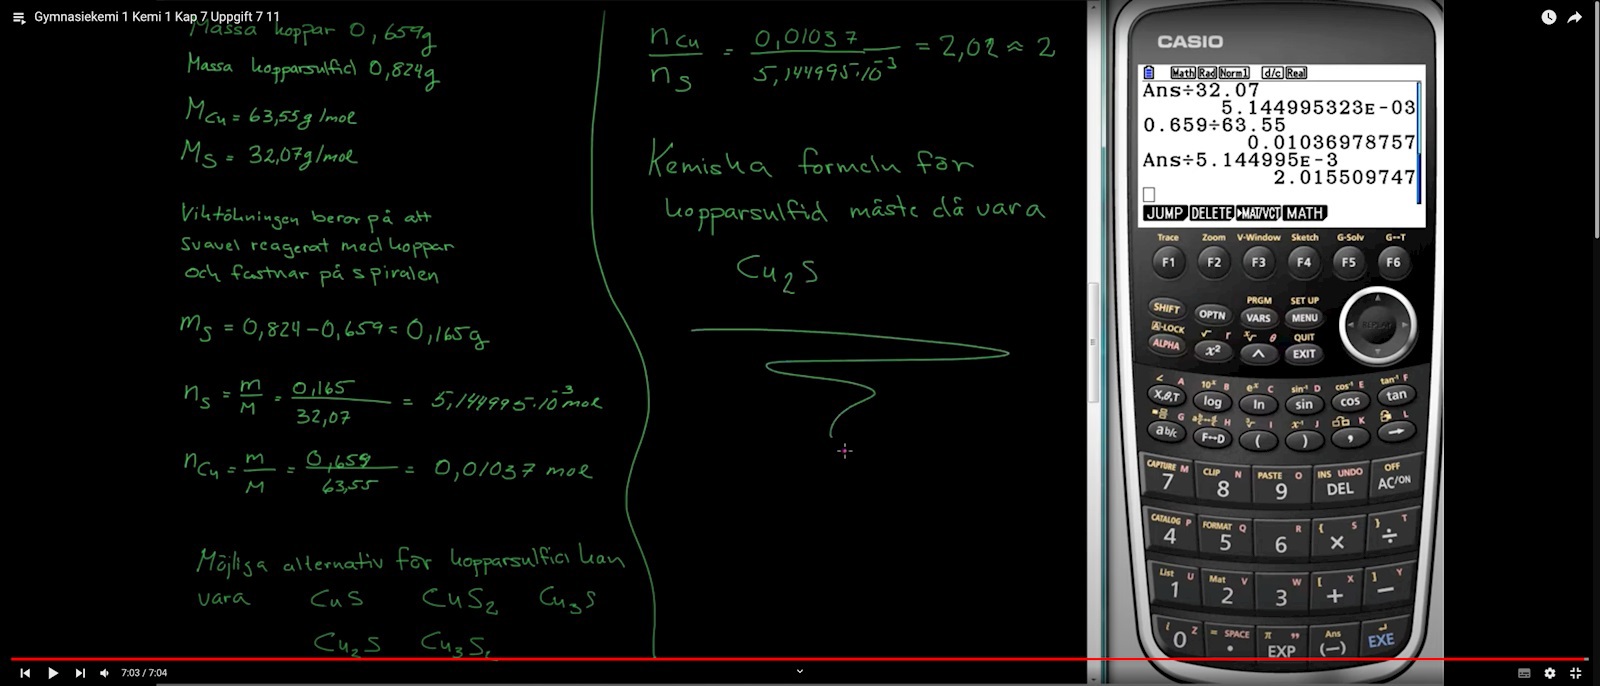 Gymnasiekemi 1 Kemi 1 Kap 7 Uppgift 7 11
Massa koppar 0,659g
Massa kopparsulfid 0,824g
M_Cu = 63,55g/mol
M_S = 32,07g/mol
Viktökningen beror på att
svavel reagerat med koppar
och fastnar på spiralen
m_S = 0,824-0,659 = 0,165g
n_S = m/M = 0,165/32,07 = 5,144995·10^-3 mol
n_Cu = m/M = 0,659/63,55 = 0,01037 mol
Möjliga alternativ för kopparsulfid kan
vara CuS CuS₂ Cu₃S
Cu₂S Cu₃S
n_Cu/n_S = 0,01037/5,144995·10^-3 = 2,02 ≈ 2
Kemiska formeln för
kopparsulfid måste då vara
Cu₂S
CASIO
Math Rad Norm1 d/c Real
Ans÷32.07
5.144995323E-03
0.659÷63.55
0.01036978757
Ans÷5.144995E-3
2.015509747
JUMP DELETE ►MAT/VCT MATH
Trace Zoom V-Window Sketch G-Solv G↔T
F1 F2 F3 F4 F5 F6
PRGM SET UP
SHIFT OPTN VARS MENU
A-LOCK √ r θ QUIT
ALPHA x² ^ EXIT
REPLAY
∠ A 10ˣ B eˣ C sin⁻¹ D cos⁻¹ E tan⁻¹ F
X,θ,T log ln sin cos tan
G H I x⁻¹ J K L
a b/c F↔D ( ) , →
CAPTURE M CLIP N PASTE O INS UNDO OFF
7 8 9 DEL AC/ON
CATALOG P FORMAT Q R { S } T
4 5 6 × ÷
List U Mat V W [ X ] Y
1 2 3 + −
i Z = SPACE π " Ans
0 . EXP (−) EXE
7:03 / 7:04